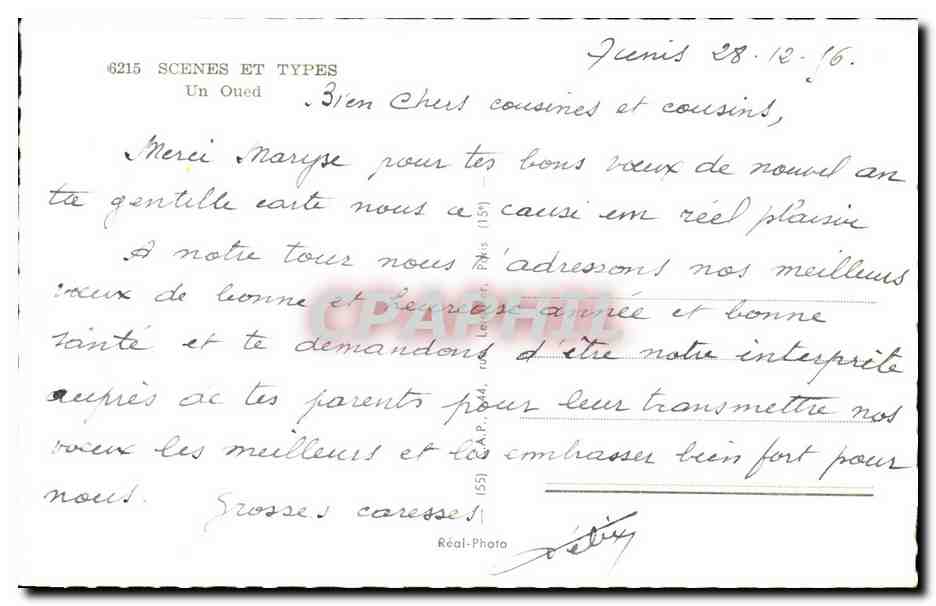 6215 SCENES ET TYPES
Un Oued
Tunis 28-12-56.
Bien Chers cousines et cousins,
Merci Maryse pour tes bons vœux de nouvel an
ta gentille carte nous a causé un réel plaisir
A notre tour nous t'adressons nos meilleurs
vœux de bonne et heureuse année et bonne
santé et te demandons d'être notre interprête
auprès de tes parents pour leur transmettre nos
vœux les meilleurs et les embrasser bien fort pour
nous. Grosses caresses
Félix
Réal-Photo
CPAPHIL
(55) C.A.P., 44, rue Paris (15e)